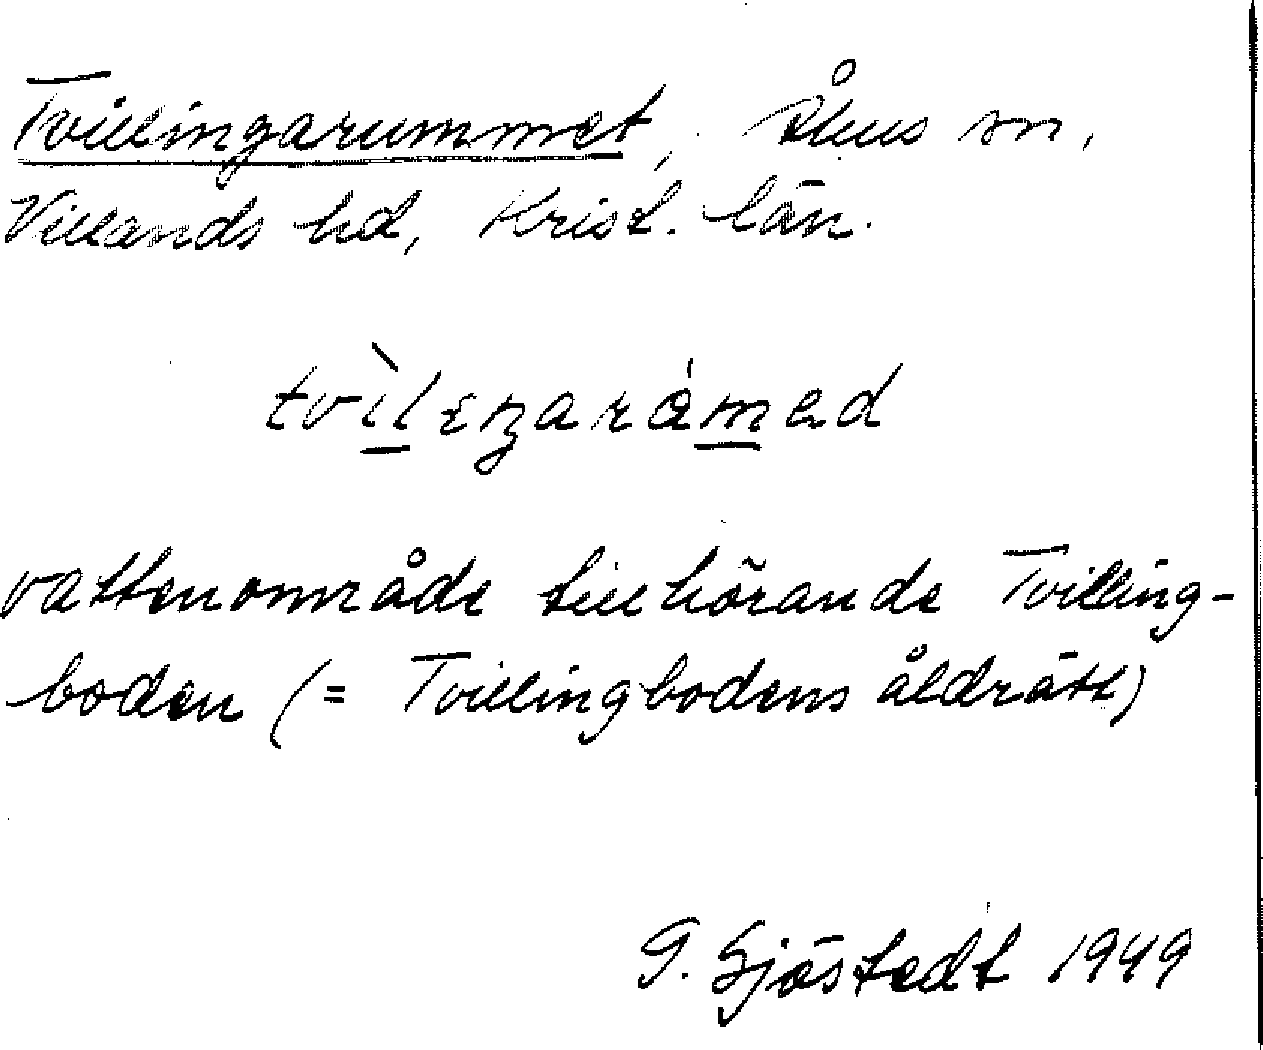 Tvillingarummet, Åhus sn,
Villands hd, Krist. län.
tvìlɛŋarámad
vattenområde tillhörande Tvilling-
boden (= Tvillingbodens åldrätt)
G. Sjöstedt 1949